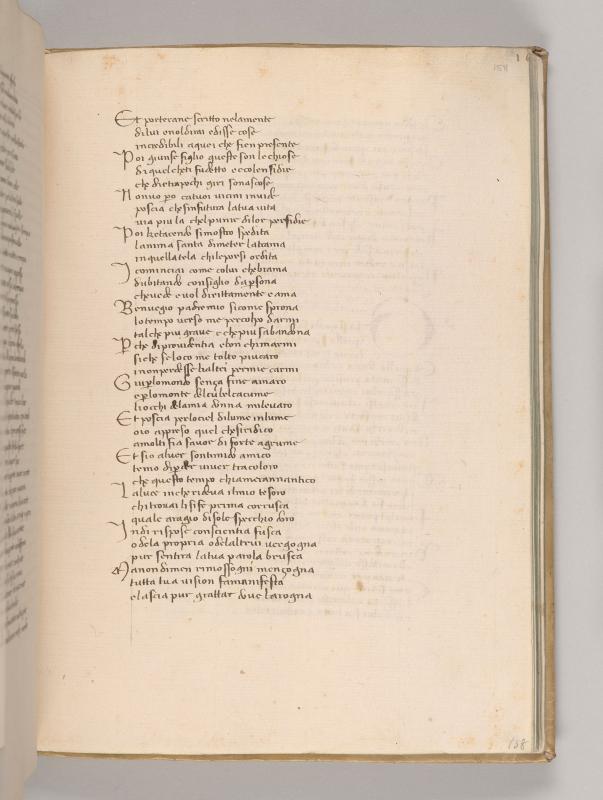 158
Et porterane scritto nelamente
dilui enoldirai edisse cose
incredibili aquei che fien presente
Poi giunse figlio queste son lechiose
di quelcheti fu detto eccolensidie
che dietro apochi giri sonascose
Non vuo po catuoi vicini invidie
poscia chesinfutura latua vita
via piu la chelpunir dilor perfidie
Poi ke tacendo simostro spedita
lanima santa dimeter latrama
in quella tela chileporsi ordita
I cominciai come colui chebrama
dubitando consiglio da psona
chevede e vol dirittamente e ama
Ben veggio padre mio sicome sprona
lo tempo verso me per colpo darmi
tal che piu grave e che piu sabandona
P che di providentia e bon chi marmi
si che se loco me tolto piu caro
i non perdesse lialtri per mie carmi
Giu plo mondo senza fine amaro
e plo monte del cui bel cacume
li occhi de la mia donna mi levaro
Et poscia per lo ciel di lume in lume
o io appreso quel che si ridico
a molti fia savor di forte agrume
Et sio al ver son timido amico
temo di pder viver tra coloro
che questo tempo chiameran antico
La luce in che rideva il mio tesoro
chi trovai li si fe prima corrusca
quale a ragio di sole specchio doro
Indi rispose conscientia fusca
o de la propria o de laltrui vergogna
pur sentira la tua parola brusca
Ma non dimen rimossogni menzogna
tutta tua vision fa manifesta
e lascia pur grattar dove la rogna
158